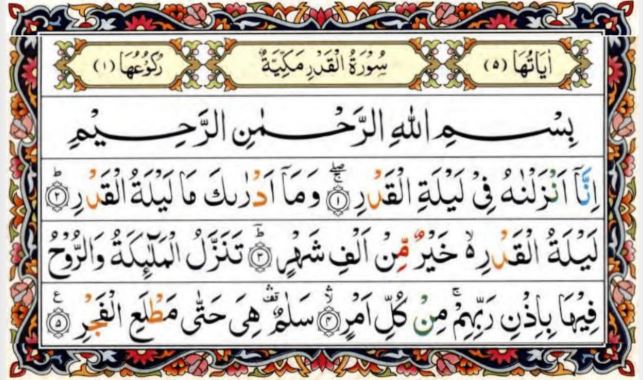 اٰیَاتُهَا (٥) سُوْرَةُ الْقَدْرِ مَكِّيَّةٌ رُكُوْعُهَا (١)
بِسْمِ اللهِ الرَّحْمٰنِ الرَّحِيْمِ
اِنَّاۤ اَنْزَلْنٰهُ فِیْ لَیْلَةِ الْقَدْرِ ۚۖ﴿١﴾ وَ مَاۤ اَدْرٰىكَ مَا لَیْلَةُ الْقَدْرِ ؕ﴿٢﴾
لَیْلَةُ الْقَدْرِ ۙ۬ خَیْرٌ مِّنْ اَلْفِ شَهْرٍ ؕ﴿٣﴾ تَنَزَّلُ الْمَلٰٓىِٕكَةُ وَ الرُّوْحُ
فِیْهَا بِاِذْنِ رَبِّهِمْ ۚ مِنْ كُلِّ اَمْرٍ ۙۛ﴿٤﴾ سَلٰمٌ ۛ۫ هِیَ حَتّٰی مَطْلَعِ الْفَجْرِ ﴿٥﴾ ع